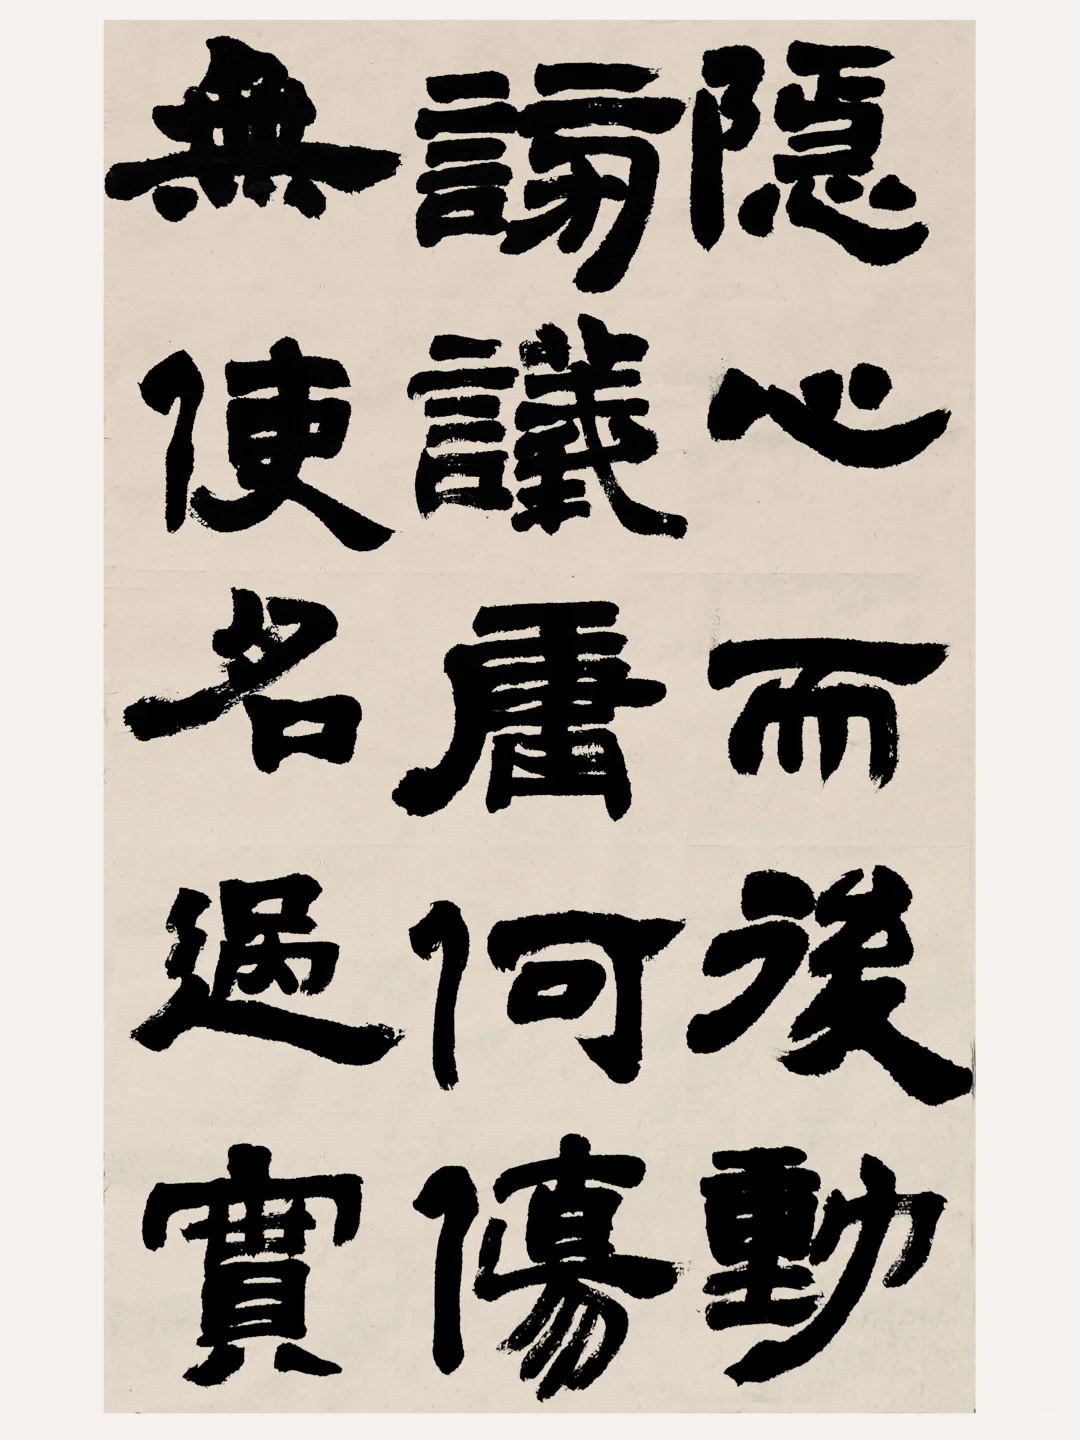 隱心而後動
謗議庸何傷
無使名過實